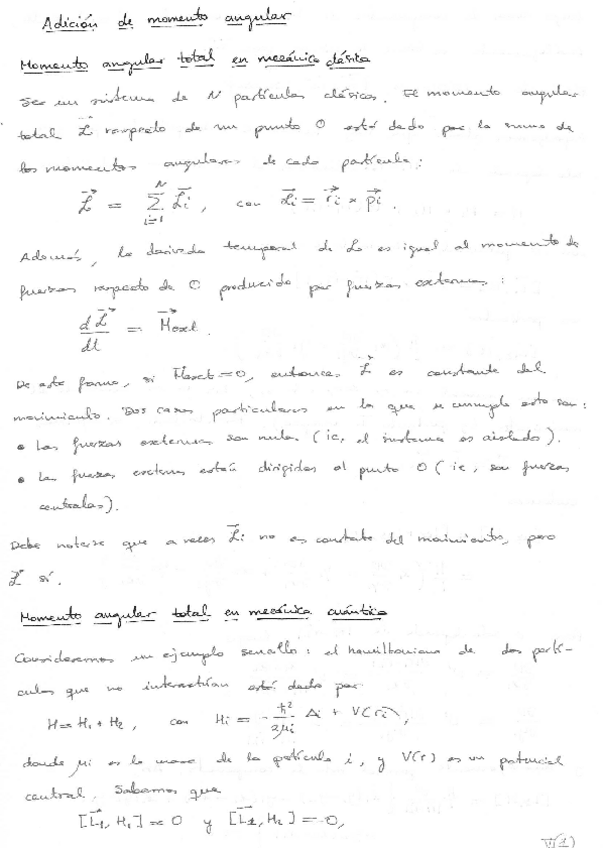 Adición de momento angular
Momento angular total en mecánica clásica
Sea un sistema de N partículas clásicas. El momento angular
total L⃗ respecto de un punto O está dado por la suma de
los momentos angulares de cada partícula:
L⃗ = Σ_{i=1}^{N} L⃗i, con L⃗i = r⃗i × p⃗i.
Además, la derivada temporal de L es igual al momento de
fuerzas respecto de O producido por fuerzas externas:
dL⃗/dt = M⃗ext.
De esta forma, si M⃗ext = 0, entonces L⃗ es constante del
movimiento. Dos casos particulares en lo que se cumple esto son:
• Las fuerzas externas son nulas (ie, el sistema es aislado).
• Las fuerzas externas están dirigidas al punto O (ie, son fuerzas
centrales).
Debe notarse que a veces L⃗i no es constante del movimiento, pero
L⃗ sí.
Momento angular total en mecánica cuántica
Consideremos un ejemplo sencillo: el hamiltoniano de dos partí-
culas que no interactúan está dado por
H = H₁ + H₂, con Hi = -ħ²/2μi Δi + V(ri),
donde μi es la masa de la partícula i, y V(r) es un potencial
central. Sabemos que
[L⃗₁, H₁] = 0 y [L⃗₂, H₂] = 0,